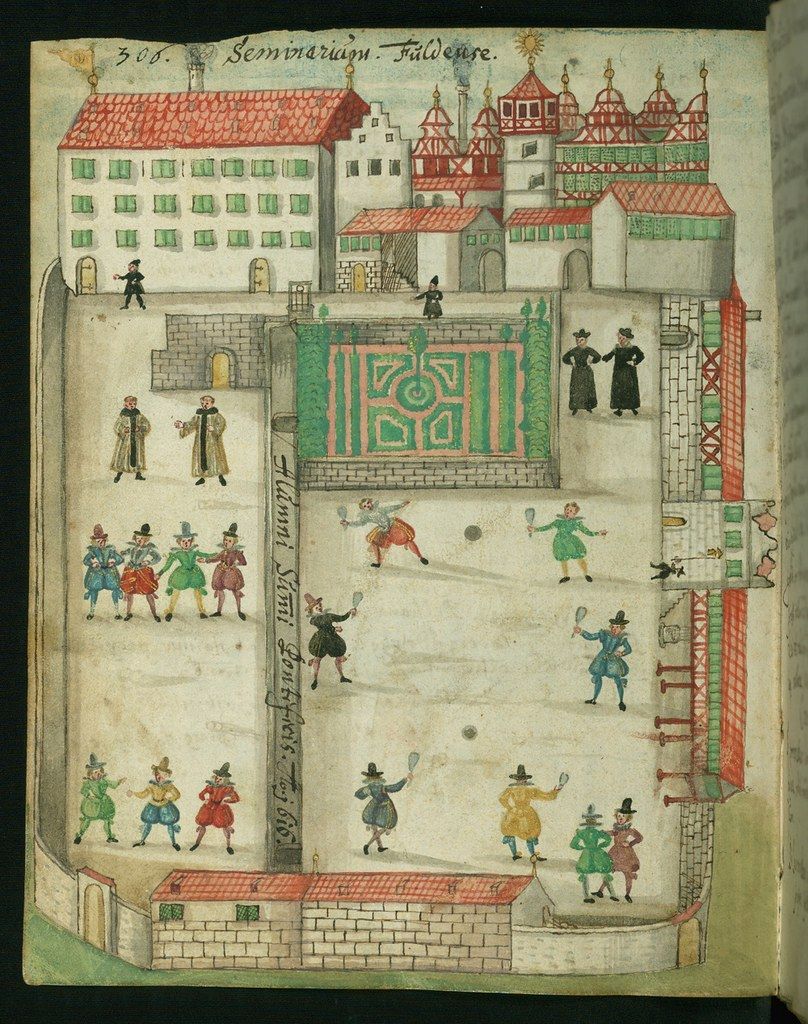 306. Seminarium. Fuldense.
Alumni Sumi Pontificis. Ao 1616.